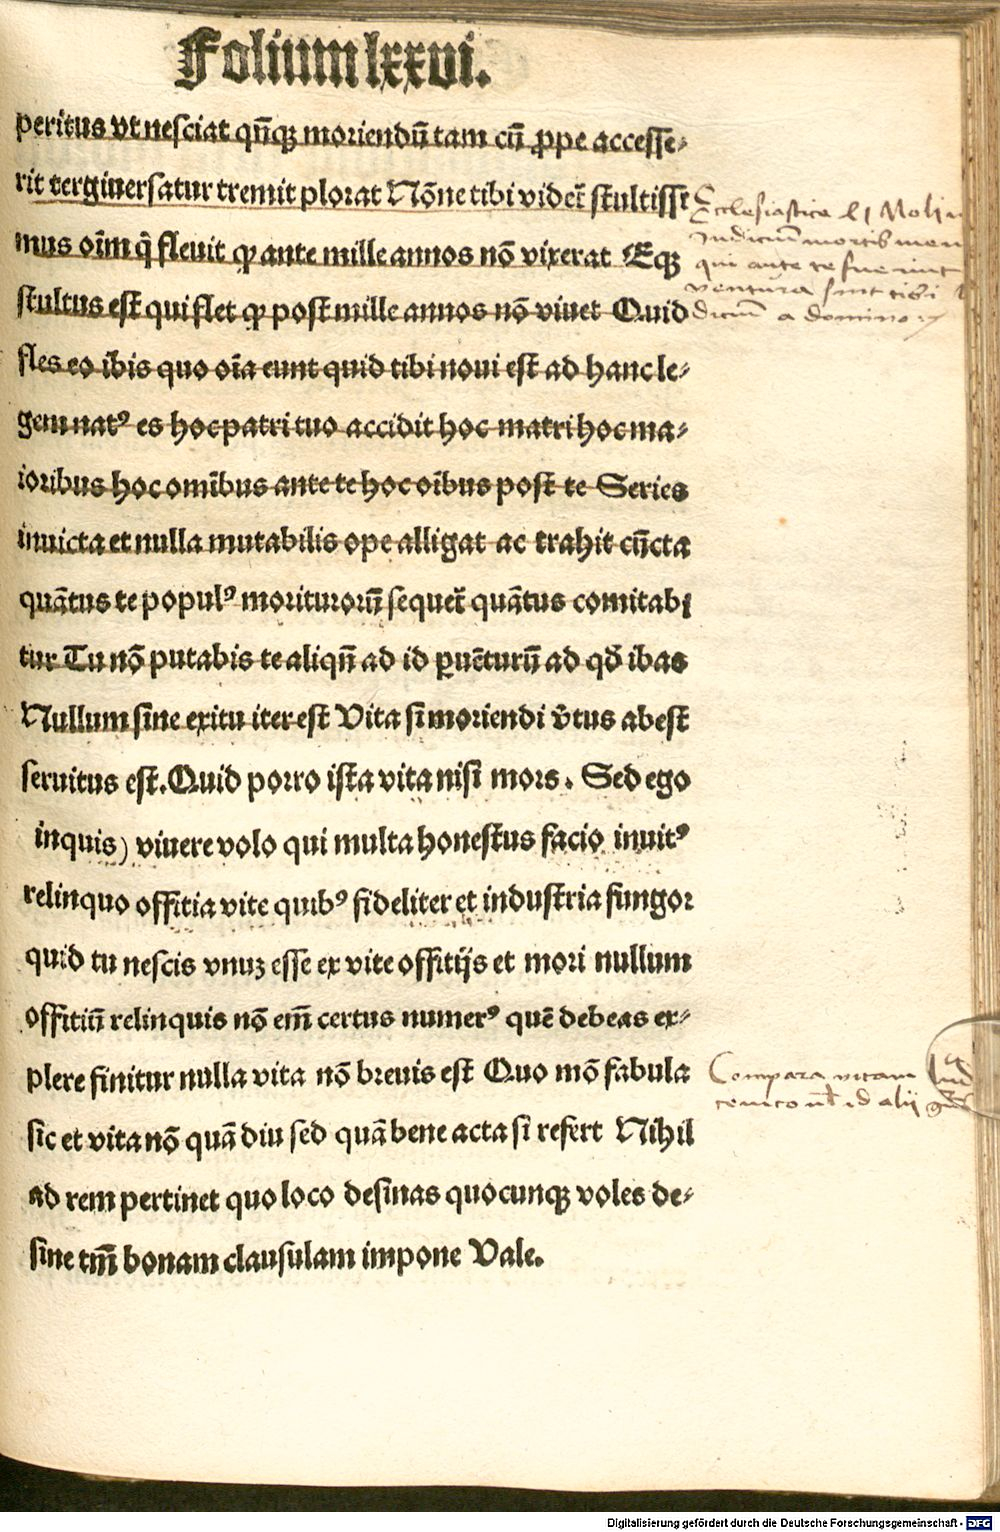 Folium lxxvi.
peritus vt nesciat qn̄qꝫ moriendū tam cū ꝓpe accesse⸗
rit tergiuersatur tremit plorat Nōne tibi videt̄ stultissi
mus oīm q̄ fleuit ꝙ ante mille annos nō vixerat Eqꝫ
stultus est qui flet ꝙ post mille annos nō viuet Quid
fles eo ibis quo oīa eunt quid tibi noui est ad hanc le⸗
gem natꝰ es hoc patri tuo accidit hoc matri hoc ma⸗
ioribus hoc omībus ante te hoc oībus post te Series
inuicta et nulla mutabilis ope alligat ac trahit cūcta
quātus te populꝰ moriturorū sequet̄ quātus comitabi
tur Tu nō putabis te aliqn̄ ad id ꝑuēturū ad qđ ibas
Nullum sine exitu iter est Vita si moriendi v̄tus abest
seruitus est. Quid porro ista vita nisi mors. Sed ego
inquis) viuere volo qui multa honestus facio inuitꝰ
relinquo offitia vite quibꝰ fideliter et industria fungor
quid tu nescis vnuꝫ esse ex vite offitijs et mori nullum
offitiū relinquis nō em̄ certus numerꝰ quē debeas ex⸗
plere finitur nulla vita nō breuis est Quo mō fabula
sic et vita nō quā diu sed quā bene acta si refert Nihil
ad rem pertinet quo loco desinas quocunqꝫ voles de⸗
sine tm̄ bonam clausulam impone Vale.
Ecclesiastica 41 Noli
Judiciū mortis
qui ante te fuerunt
ventura sint tibi
a domino
Compara vitam
Digitalisierung gefördert durch die Deutsche Forschungsgemeinschaft - DFG